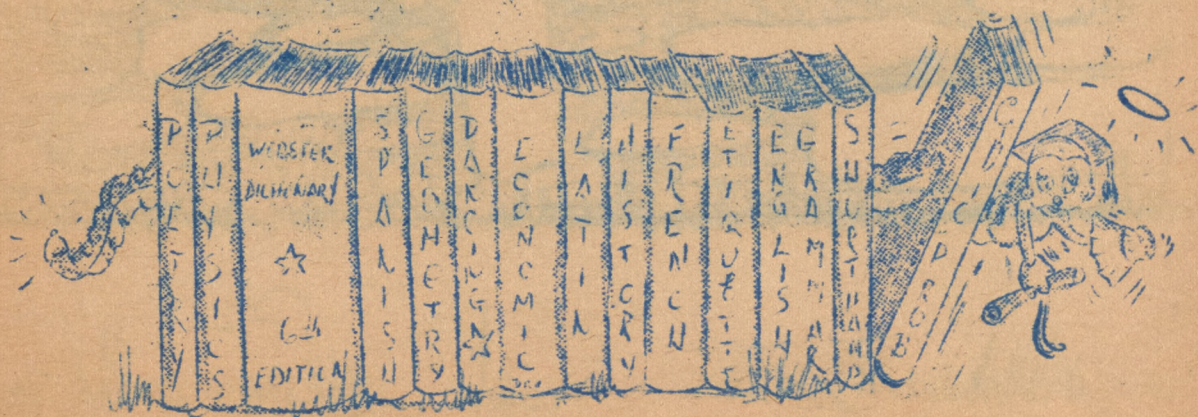 POETRY
PHYSICS
WEBSTER
DICTIONARY
6th
EDITION
SPANISH
GEOMETRY
DANCING
ECONOMIC
LATIN
HISTORY
FRENCH
ETIQUETTE
ENGLISH
GRAMMAR
SHORTHAND
PROB